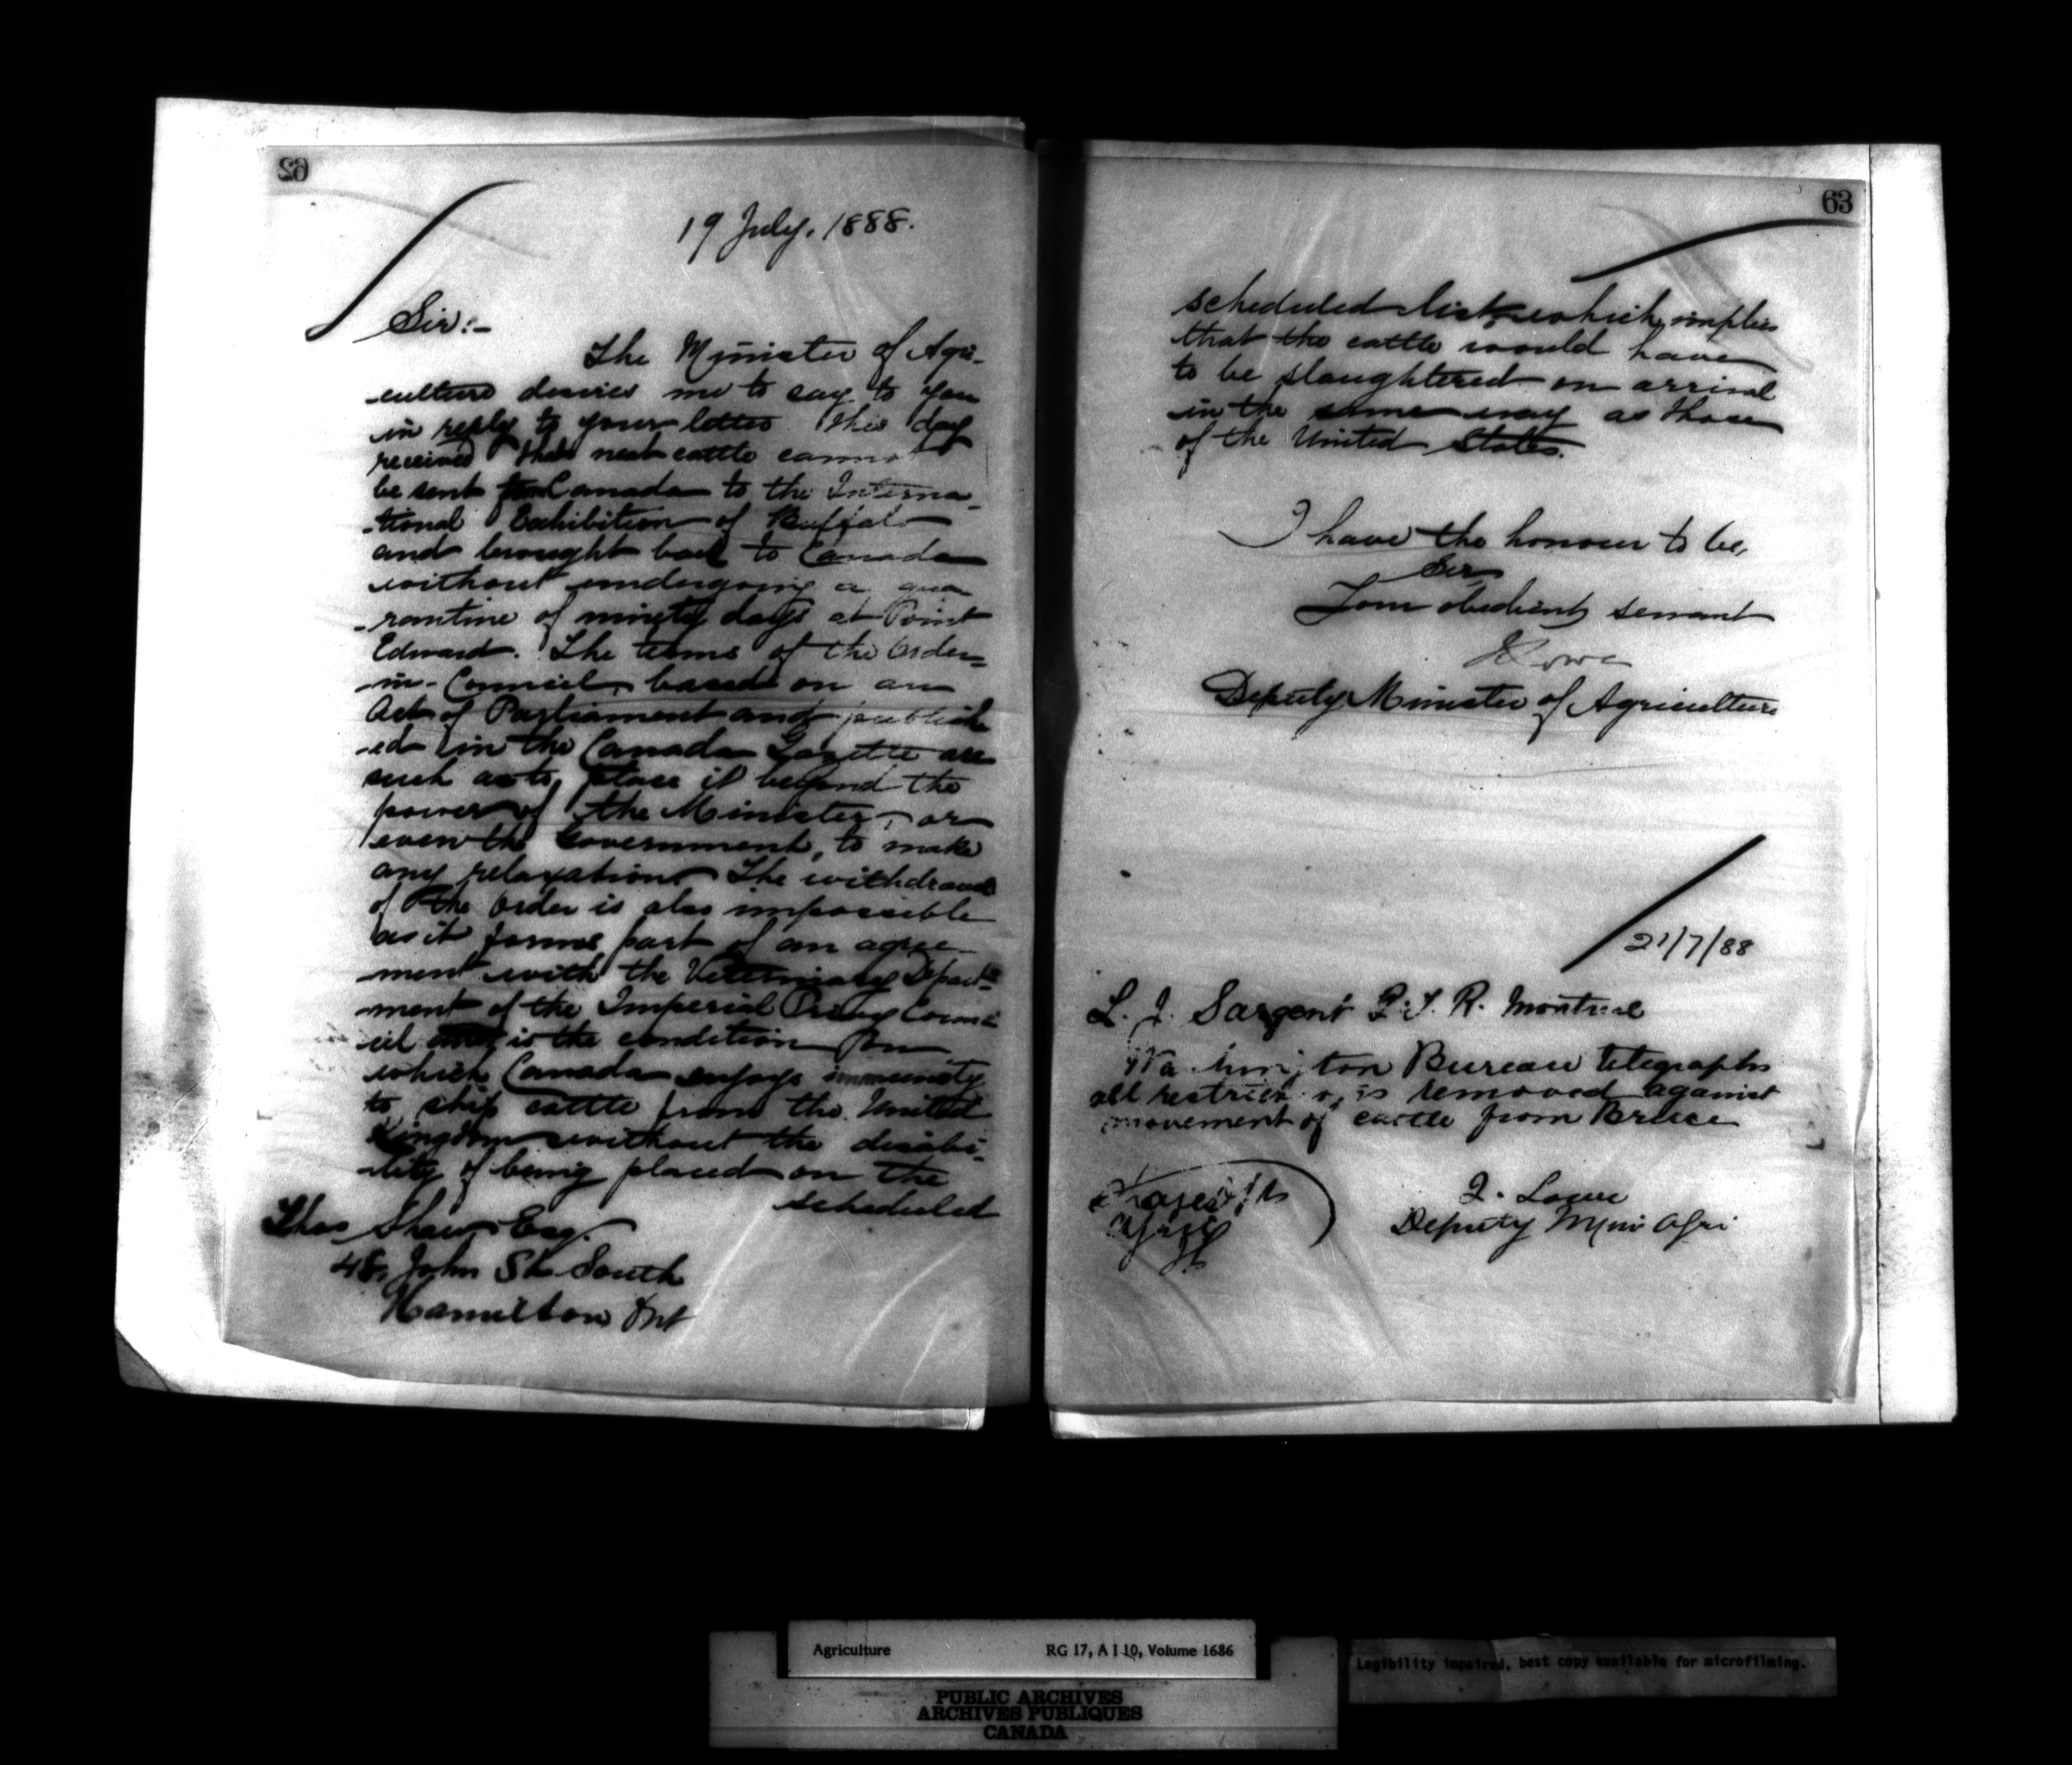 62
19 July, 1888.
Sir:-
The Minister of Agri-
culture desires me to say to you
in reply to your letter this day
received that neat cattle cannot
be sent from Canada to the Interna-
-tional Exhibition of Buffalo
and brought back to Canada
without undergoing a qua
-rantine of ninety days at Point
Edward. The terms of the Order-
-in-Council, based on an
Act of Parliament and publish
-ed in the Canada Gazette are
such as to place it beyond the
power of the Minister, or
even the Government, to make
any relaxation. The withdrawal
of the Order is also impossible
as it forms part of an agree-
ment with the Veterinary Depart-
ment of the Imperial Privy Coun-
cil and is the condition on
which Canada enjoys immunity
to ship cattle from the United
Kingdom without the disabi-
-lity of being placed on the
scheduled
Thos Shaw Esq.
48, John St. South
Hamilton Ont
63
scheduled list, which implies
that the cattle would have
to be slaughtered on arrival
in the same way as those
of the United States.
I have the honour to be,
Sir
Your obedient servant
J Lowe
Deputy Minister of Agriculture
21/7/88
L. J. Sargent G. T. R. Montreal
Washington Bureau telegraphs
all restrictions is removed against
movement of cattle from Bruce
J. Lowe
Deputy Min Agri
Agriculture RG 17, A I 10, Volume 1686
PUBLIC ARCHIVES
ARCHIVES PUBLIQUES
CANADA
Legibility impaired, best copy available for microfilming.